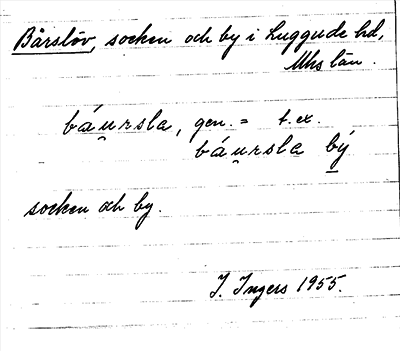 Bårslöv, socken och by i Luggude hd,
Mhs län.
báu̯rsla, gen. = t.ex.
báu̯rsla bý
socken och by.
I. Ingers 1955.